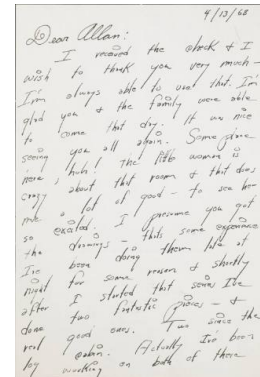 4/13/68
Dear Allan:
I received the check & I
wish to thank you very much –
I'm always able to use that. I'm
glad you & the family were able
to come that day. It was nice
seeing you all again. Some place
here, huh! The little woman is
crazy about that room & that does
me a lot of good – to see her
so excited. I presume you got
the drawings – thats some experience
I've been doing them late at
night for some reason & shortly
after I started that series I've
done two fantastic pieces – &
real good ones. Two since the
Actually I've been
working on both of these